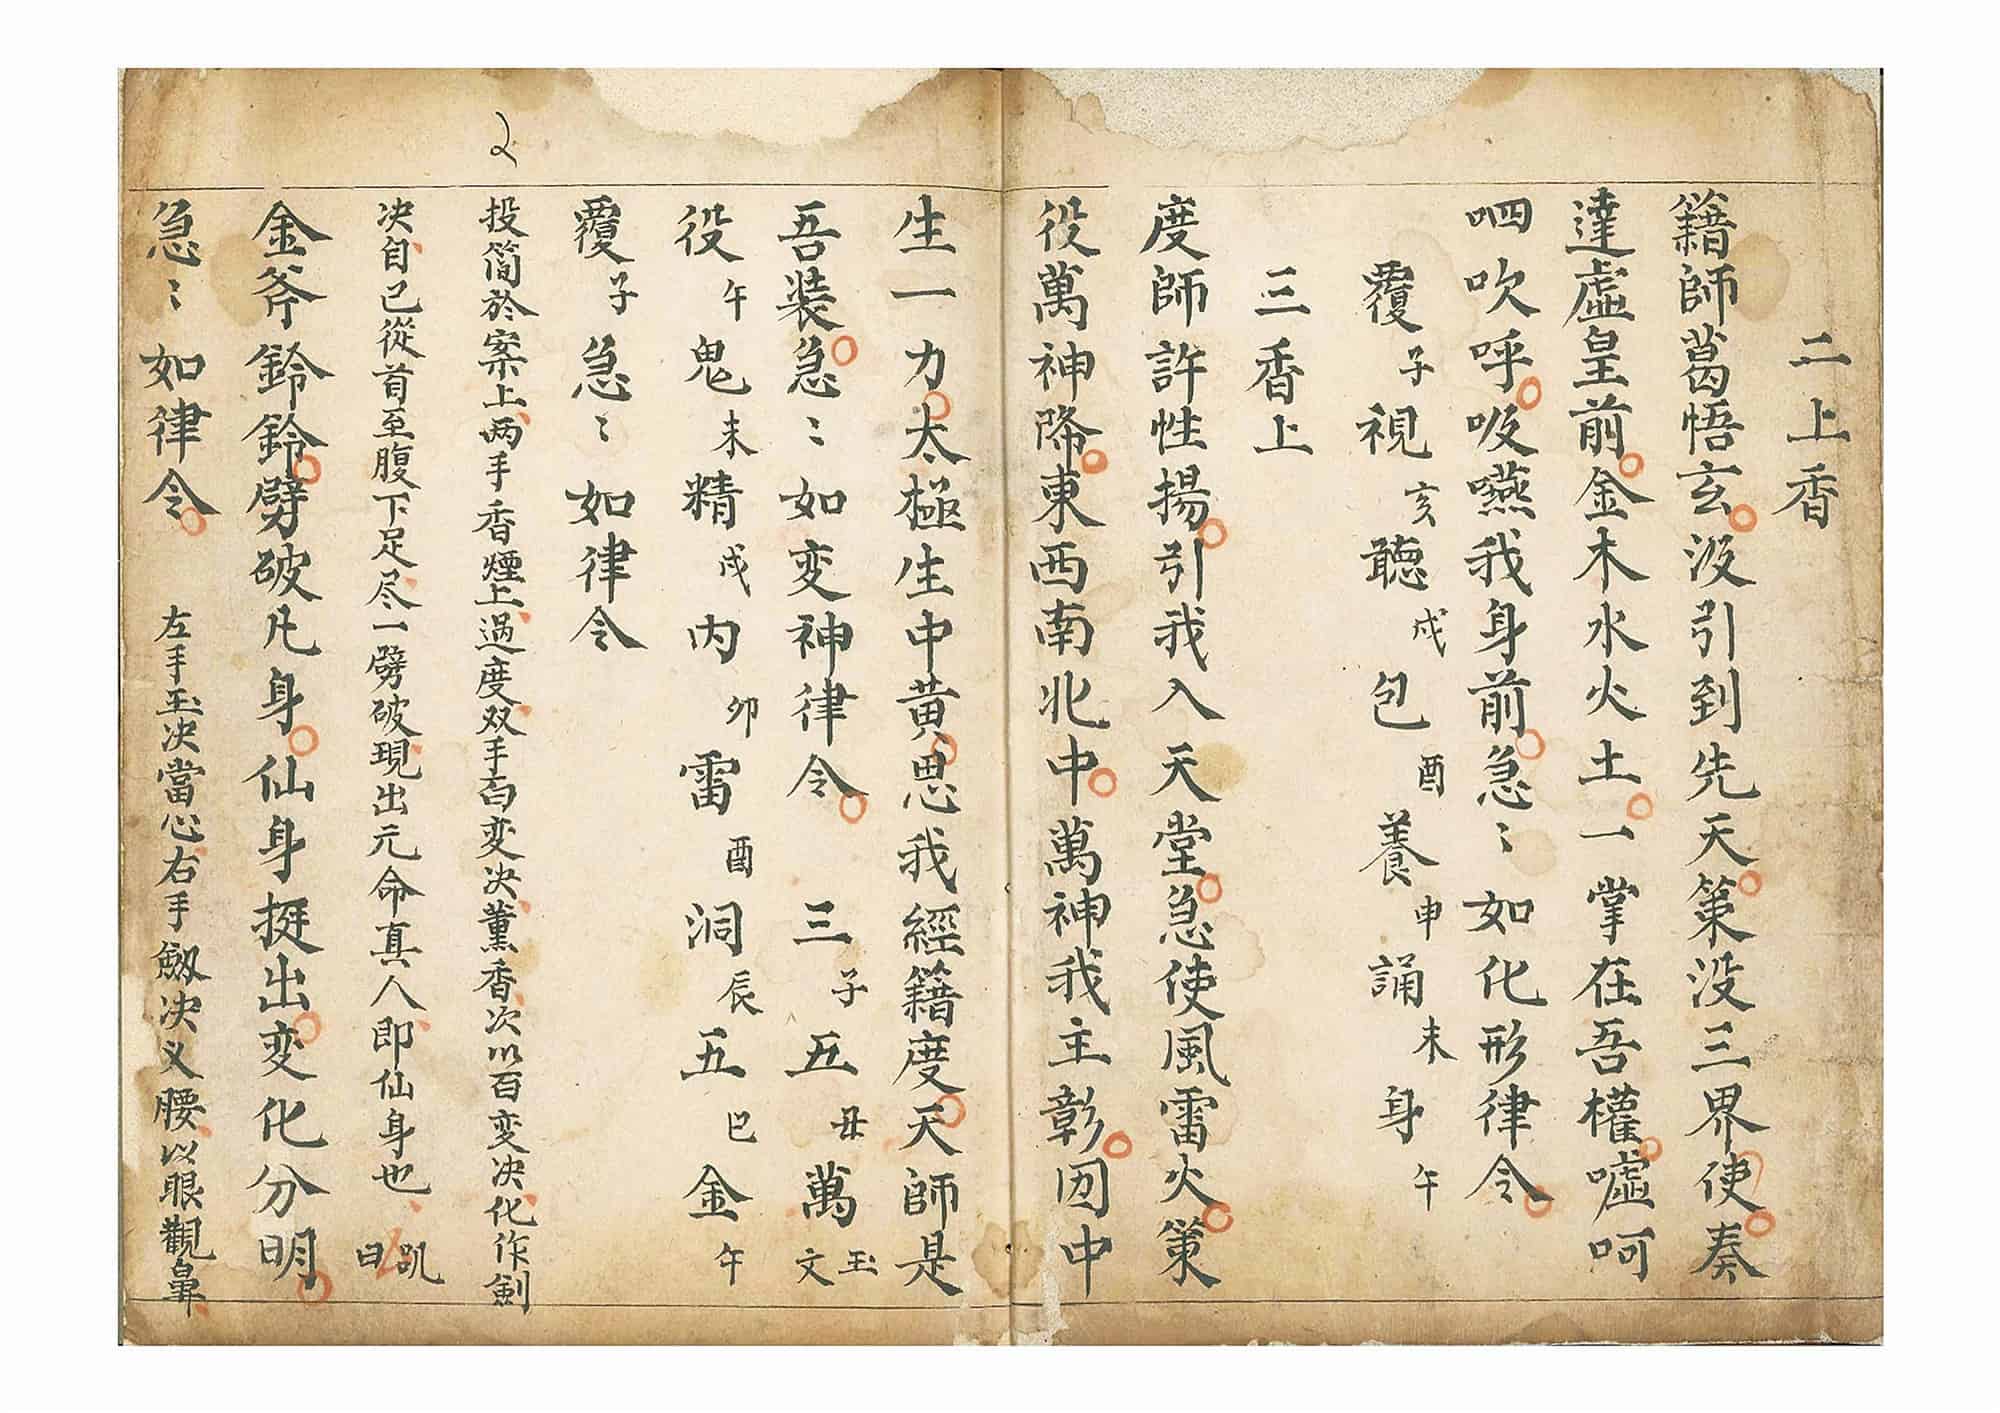 二上香
籍師葛悟玄没引到先天策没三界使奏
達虛皇前金木水火土一掌在吾權噓呵
呬吹呼吸嚥我身前急〻如化形律令
覆子視亥聽戌包酉養申誦未身午
三香上
度師許性揚引我入天堂急使風雷火策
役萬神降東西南北中萬神我主彰因中
生一力太極生中黄思我經籍度天師是
吾装急〻如变神律令三子五丑萬文玉
役午鬼未精戌内卯雷酉洞辰五巳金午
覆子急〻如律令
投简於案上两手香煙上過度双手百变决薰香次以百变决化作劍
决自己從首至腹下足尽一劈破現出元命真人即仙身也 呪曰
金斧鈴鈴劈破凡身仙身挺出变化分明
急〻如律令 左手玉决當心右手劔决义腰以眼觀鼻
2